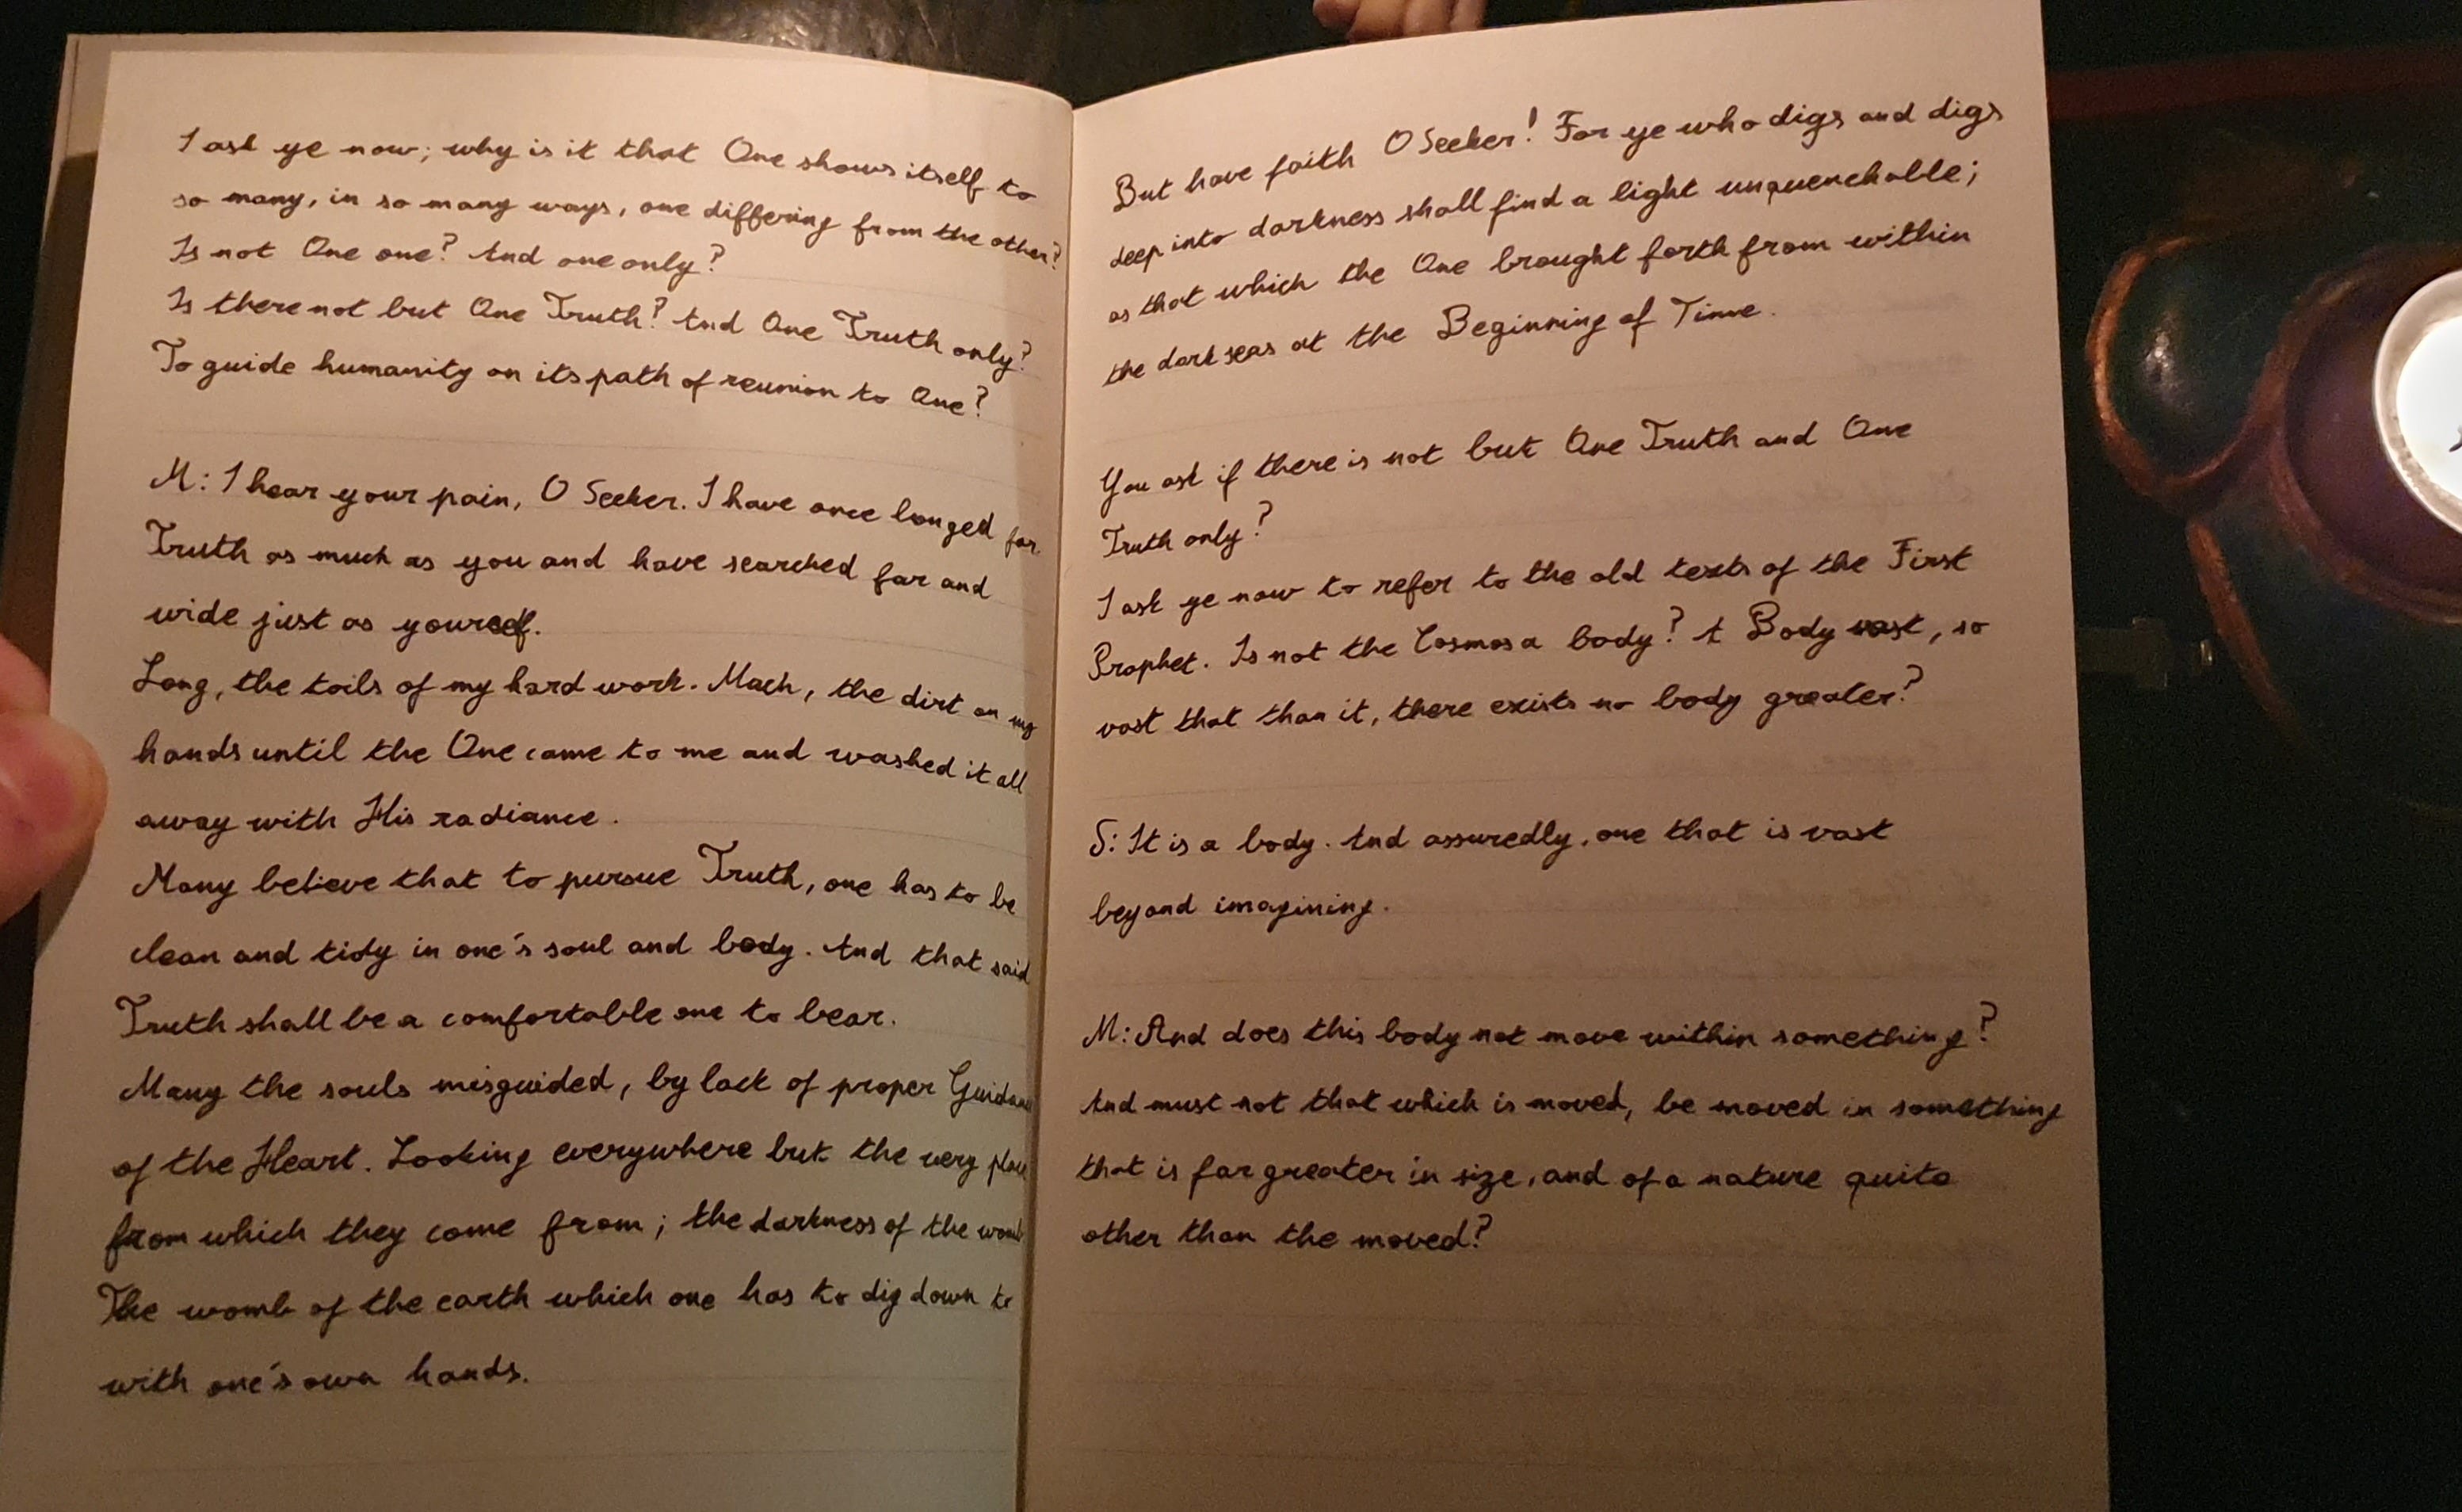 I ask ye now; why is it that One shows itself to
so many, in so many ways, one differing from the other?
Is not One one? And one only?
Is there not but One Truth? And One Truth only?
To guide humanity on its path of reunion to One?
M: I hear your pain, O Seeker. I have once longed for
Truth as much as you and have searched far and
wide just as yourself.
Long, the toils of my hard work. Much, the dirt on my
hands until the One came to me and washed it all
away with His radiance.
Many believe that to pursue Truth, one has to be
clean and tidy in one's soul and body. And that said
Truth shall be a comfortable one to bear.
Many the souls misguided, by lack of proper
of the Heart. Looking everywhere but the very place
from which they come from; the darkness of the womb
The womb of the earth which one has to dig down to
with one's own hands.
But have faith O Seeker! For ye who digs and digs
deep into darkness shall find a light unquenchable;
as that which the One brought forth from within
the dark seas at the Beginning of Time.
You ask if there is not but One Truth and One
Truth only?
I ask ye now to refer to the old texts of the First
Prophet. Is not the Cosmos a body? A Body vast, so
vast that than it, there exists no body greater?
S: It is a body. And assuredly, one that is vast
beyond imagining.
M: And does this body not move within something?
And must not that which is moved, be moved in something
that is far greater in size, and of a nature quite
other than the moved?